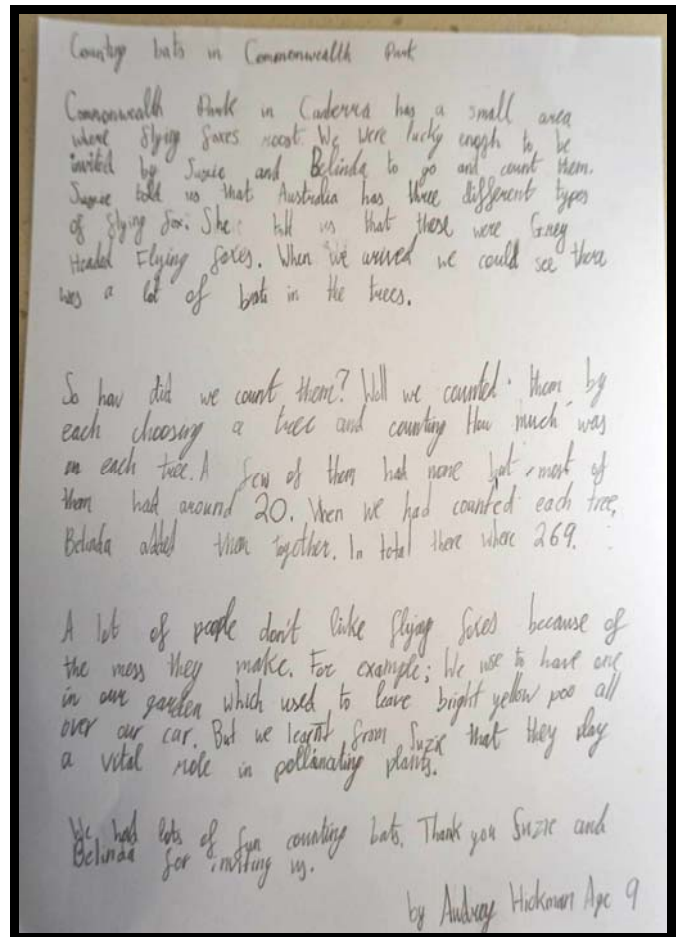 Counting bats in Commonwealth Park
Commonwealth Park in Canberra has a small area
where flying foxes roost. We were lucky enogh to be
invited by Suzie and Belinda to go and count them.
Suzie told us that Australia has three different types
of flying fox. She told us that these were Grey
Headed Flying foxes. When we arived we could see there
was a lot of bats in the trees.
So how did we count them? Well we counted them by
each choosing a tree and counting How much was
on each tree. A few of them had none but most of
them had around 20. When we had counted each tree,
Belinda added them together. In total there where 269.
A lot of people don't like flying foxes because of
the mess they make. For example; We use to have one
in our garden which used to leave bright yellow poo all
over our car. But we learnt from Suzie that they play
a vital role in pollanating plants.
We had lots of fun counting bats. Thank you Suzie and
Belinda for inviting us.
by Audrey Hickman Age 9